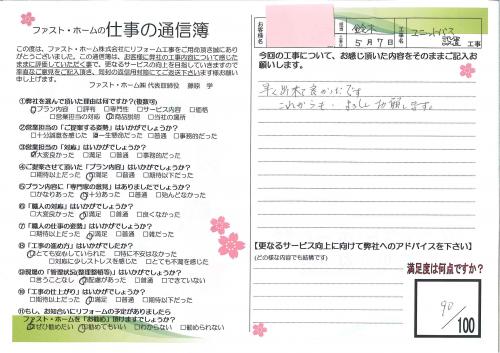 ファスト・ホームの仕事の通信簿
この度は、ファスト・ホーム株式会社にリフォーム工事をご用命頂き誠にありがとうございました。この通信簿は、お客様に弊社の工事内容について感じたままに評価していただく事で、更なるサービスの向上を目指していきますので率直なご意見をご記入頂き、同封の返信用封筒にてご返送下さいます様お願い申し上げます。
ファスト・ホーム㈱ 代表取締役 藤原 学
①弊社を選んで頂いた理由は何ですか?(複数可)
□プラン内容 □評判 □専門性 □サービス内容 □価格
□営業担当の対応 □商品説明 □当社の属所
②営業担当の「ご提案する姿勢」はいかがでしょうか?
□十分誠意を感じた □一生懸命でした □普通 □事務的だった
③営業担当の「対応」はいかがでしょうか?
□大変良かった □満足 □普通 □事務的だった
④ご提案させて頂いた「プラン内容」はいかがでしょうか?
□期待以上だった □満足だった □普通 □期待以下だった
⑤プラン内容に「専門家の意見」はありましたでしょうか?
□かなりあった □十分あった □普通 □殆んどなかった
⑥「職人の対応」はいかがでしょうか?
□大変良かった □満足 □普通 □良くなかった
⑦「職人の仕事の姿勢」はいかがでしょうか?
□期待以上だった □満足 □普通 □雑だった
⑧「工事の進め方」はいかがでしょうか?
□とても安心していられた □特に不安はなかった
□対応に少しストレスを感じた □とても不満を感じた
⑨現場の「管理状況(整理整頓等)」はいかがでしょうか?
□言うことなし □配慮があった □普通 □できていない
⑩「工事の仕上がり」はいかがでしょうか?
□期待以上だった □満足 □普通 □期待以下だった
⑪もし、お知合いにリフォームの予定がありましたら
ファスト・ホームを「お勧め」頂けますでしょうか?
□ぜひ勧めたい □勧めてもいい □わからない □勧められない
お客様名
鈴木
5月7日
工事名
ユニットバス
設置 工事
今回の工事について、お感じ頂いた内容をそのままご記入お願いします。
早く出来て良かったです
これからも よろしくお願します。
【更なるサービス向上に向けて弊社へのアドバイスを下さい】
(どの様な内容でも結構です)
満足度は何点ですか?
90
/100